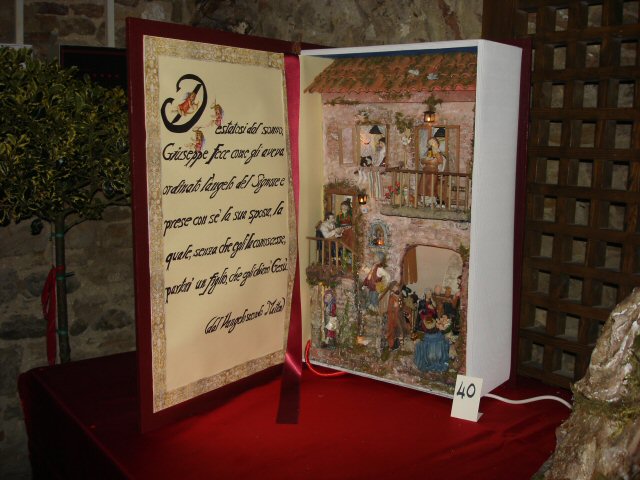 Destatosi dal sonno,
Giuseppe fece come gli aveva
ordinato l'angelo del Signore e
prese con sè la sua sposa, la
quale, senza che egli la conoscesse,
partorì un figlio, che egli chiamò Gesù.
(dal Vangelo secondo Matteo)
40